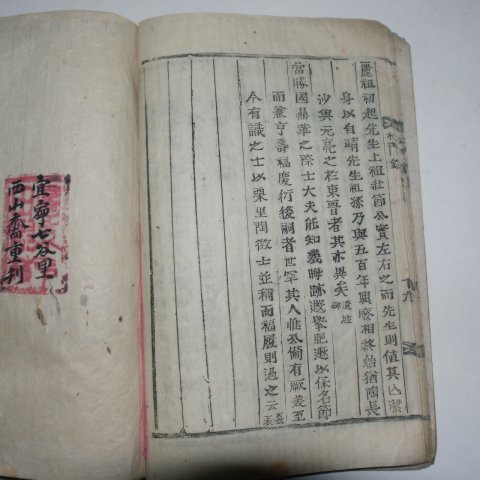 麗祖初起先生上祖壯節公實左右之而先生則值其亡潔
身以自靖先生祖孫乃與五百年興廢相終始猶陶長
沙與元亮之於東晉者其亦異矣
當勝國鼎革之際士大夫能知幾晦跡遯擧肥遯以保名節
而兼亨壽福慶衍後嗣者世罕其人惟公備有厥美至
今有識之士以栗里陶徵士並稱而福履則過之云
宜寧七谷里
西山齋重刊